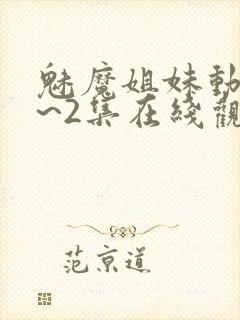 魅魔姐妹動
~2集在綫觀
范京道